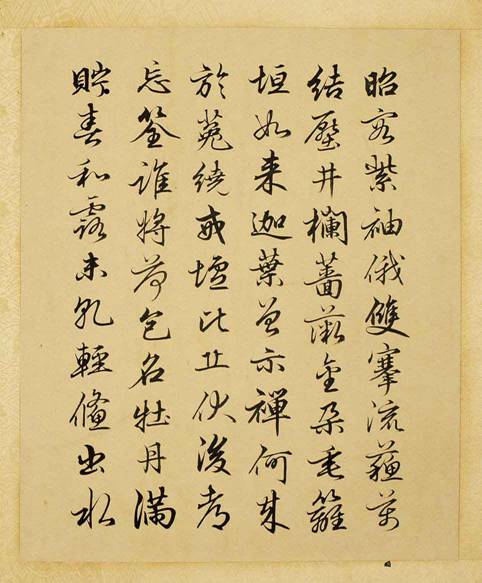 昭容紫袖俄雙搴流蘇萬
結壓井欄薔薇金朶垂籬
垣如来迦葉曾示禪何殊
於菟繞戒壇比丘伏後考
忘筌誰將荷包名牡丹滿
貯春和露未乾輕翛出水